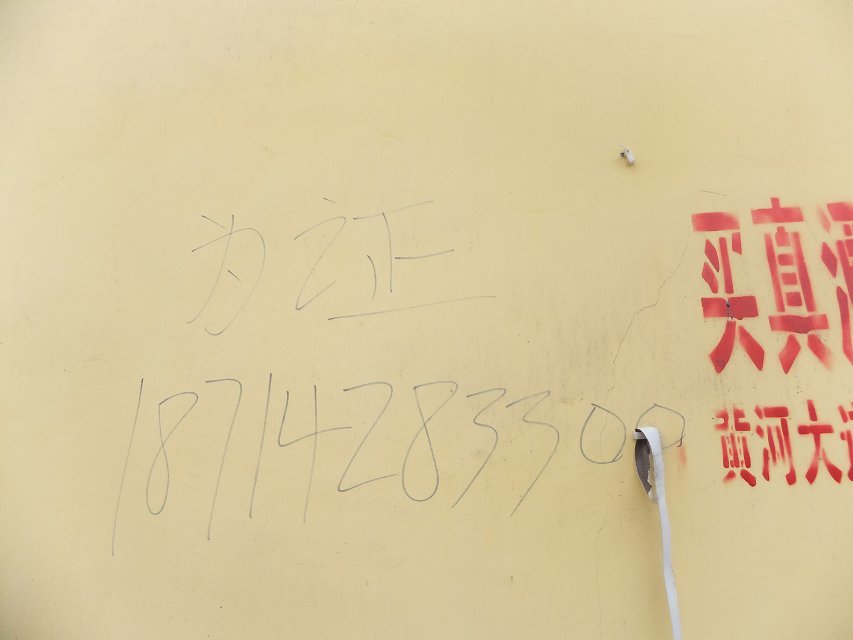 为证
18714283300
买真酒
黄河大道